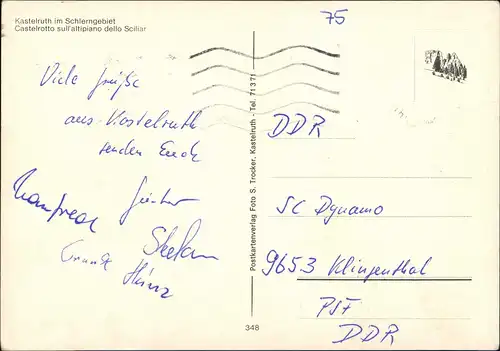 Kastelruth im Schlerngebiet
Castelrotto sull'altipiano dello Sciliar
75
Viele Grüße
aus Kastelruth
senden Euch
Manfred Günter
Stefan
Frank
Heinz
Postkartenverlag Foto S. Trocker, Kastelruth - Tel. 71371
DDR
SC Dynamo
9653 Klingenthal
PSF
DDR
348